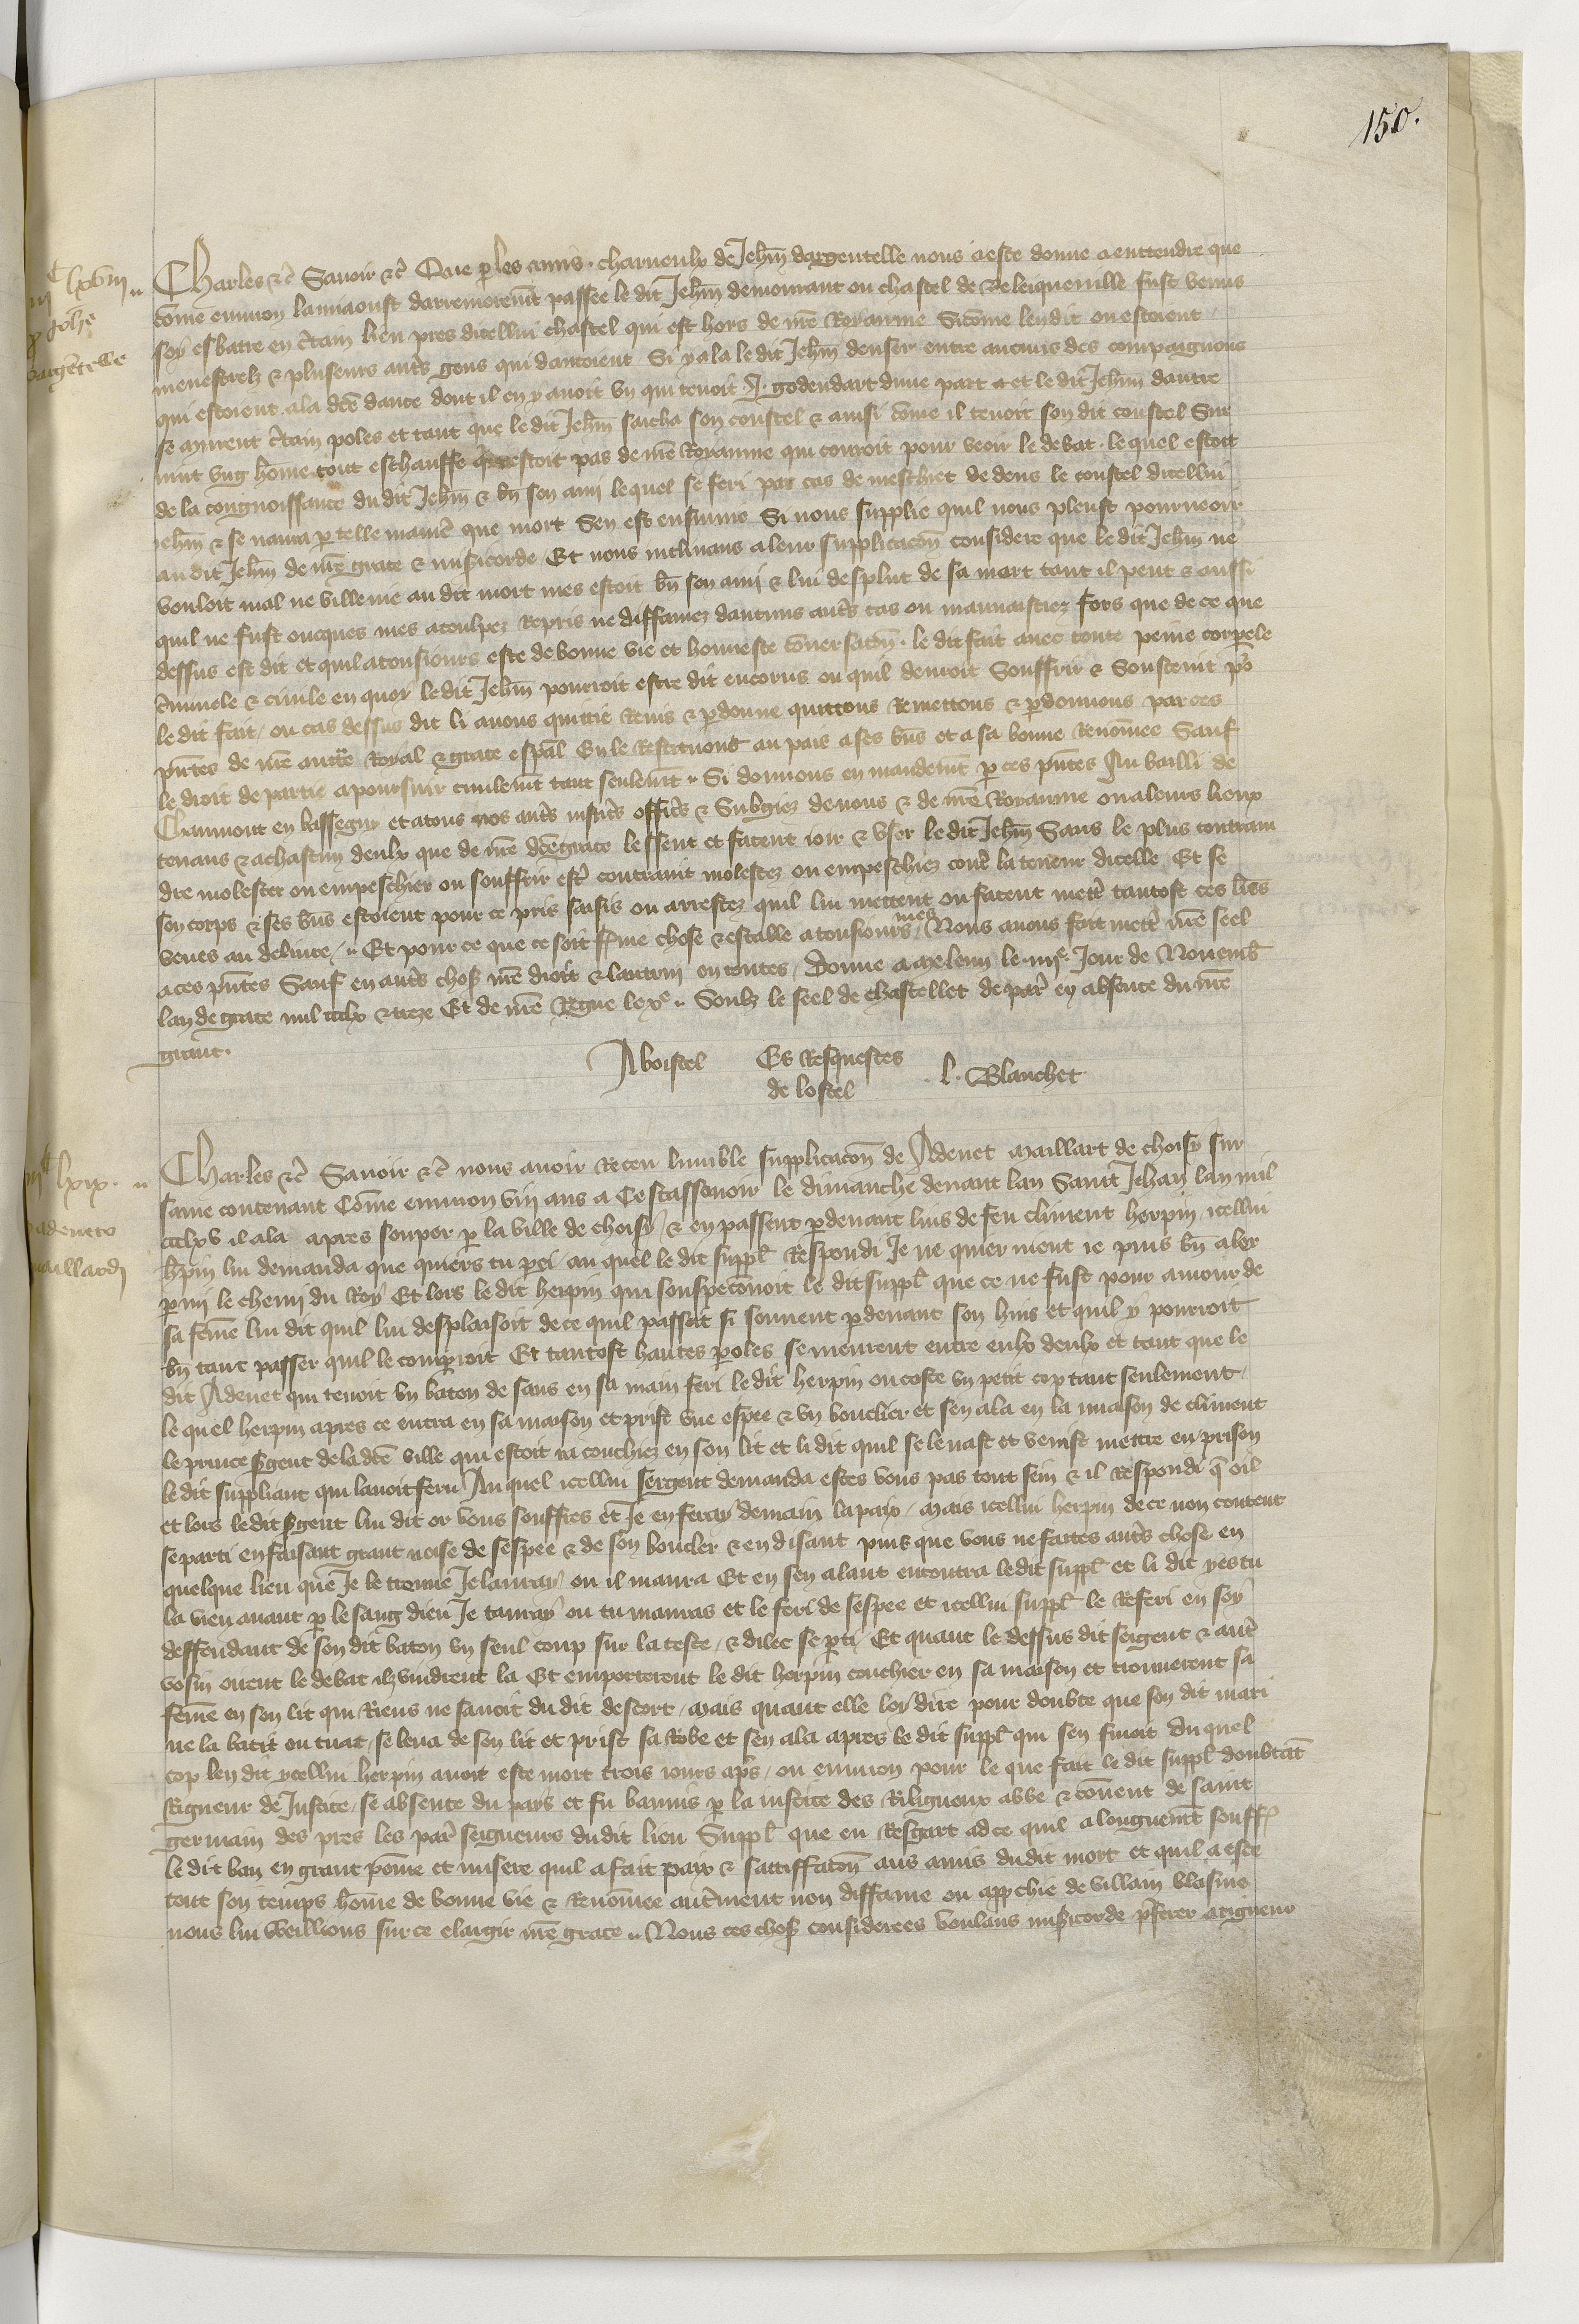 150.
Charles etc Savoir etc Que p les amis charneulx de Jehn dargentelle nous a este donne a entendre que
come environ la miaoust darrenierement passee le dit Jehn demourant ou chastel de fust venus
soy esbatre en ctain lieu pres dicellui chastel qui est hors de nre Royaume Sicome len dit ou estoient
menestrelz & pluseurs auts gens qui dancoient Si y ala le dit Jehn denser entre aucuns des compaignons
qui estoient a la dce dance dont il en y avoit un qui tenoit .I. godendart dune part et le dit Jehn dautre
se murent ctain poles et tant que le dit Jehn sacha son coustel & ainsi come il tenoit son dit coustel Sur
vint ung home tout eschauffe estoit pas de nre Royaume qui couroit pour veoir le debat . le quel estoit
de la congnoissance du dit Jehn & bn son ami lequel se feri par cas de meschief dedens le coustel dicellui
Jehn & se navra p telle manie que mort Sen est ensuivie Si nous supplie quil nous pleust pourveoir
au dit Jehn de nre grace & misicorde Et nous inclinans a leur supplicacon considere que le dit Jehn ne
vouloit mal ne villenie au dit mort mes estoit bn son ami & lui desplut de sa mort tant il peut & aussi
quil ne fust oucques mes acoulpez Repris ne diffamez daucuns auts cas ou mauvaistiez fors que de ce que
dessus est dit et quil a tousiours este de bonne vie et honneste conversacon . le dit fait avec toute peine corpele
cminele & civile en quoy le dit Jehn pourroit estre dit encorus ou quil devroit Souffrir & Soustenir po
le dit fait / ou cas dessus dit li avons quittie Remis & pdonne quittons Remettons & pdonnons par ces
pntes de nre aucte Royal & grace espal En le Restituant au pais a ses bns et a sa bonne Renomee Sauf
le droit de partie a poursuir civilemt tant seulemt .. Si donnons en mandemt p ces pntes Au bailli de
Chaumont en bassegny et a tous nos auts justics offics & Subgiez de nous & de nre Royaume ou a leurs lieux
tenans & a chascun deulx que de nre dce grace lessent et facent joir & user le dit Jehn Sans le plus contrain
dre molester ou empeschier ou souffrir estr contraint molestez ou empeschiez contr la teneur dicelle Et se
son corps & ses bns estoient pour ce pris saisis ou arrestez quil lui mettent ou facent mettr tantost ces lres
veues au delivre / .. Et pour ce que ce soit ferme chose & estable a tousioursmes Nous avons fait mettr nre seel
a ces pntes Sauf en auts choses nre droit & lautrui en toutes / Donne a meleun le iiije Jour de Novemb
lan de grace mil ccclx & treze Et de nre Regne le xe .. Soubz le seel de chastellet de par en absence du nre
grant.
Aboistel Es Requestes de lostel . l. Blanchet
Charles etc Savoir etc nous avoir Receu lumble supplicacon de Adenet Maillart de choisy sur
saine contenant Come environ viij ans a Cest assavoir le dimanche devant lan Saint Jehan lan mil
ccclxv il ala apres souper p la ville de choisy / & en passent p devant luis de feu climent herpin icellui
hpin lui demanda que quiers tu p ci / au quel le dit suppl Respondi Je ne quier nient ie puis bn aler
p mi le chemi du Roy Et lors le dit herpin qui souspeconnoit le dit suppl que ce ne fust pour amour de
sa feme lui dit quil lui desplaisoit de ce quil passoit si souvent p devant son huis et quil y pourroit
bn tant passer quil le comproit Et tantost hautes poles se meurent entre eulx deulx et tant que le
dit Adenet qui tenoit un baton de saus en sa main feri le dit herpin ou coste un petit cop tant seulement /
le quel herpin apres ce entra en sa maison et prist une espee & un bouclier et sen ala en la maison de climent
le prince sgent de la dce ville qui estoit ia couchiez en son lit et li dit quil se levast et venist mettre en prison
le dit suppliant qui lavoit feru Au quel icellui sergent demanda estes vous pas tout sein & il Respondi q oil
et lors le dit sgent lui dit or vous souffres et Je en feray demain la paix / Mais icellui herpin de ce non content
se parti en faisant grant noise de sespee & de son boucler & en disant puis que vous ne faites auts chose en
quelque lieu que Je le treuve Je lauray ou il maura Et en sen alant encontra le dit suppl et li dit yes tu
la vieu avant p le sang dieu Je tauray ou tu mauras et le feri de sespee et icellui suppl le Referi en soy
deffendant de son dit baton un seul coup sur la teste / & dilec se pti / Et quant le dessus dit sergent & autr
vosin oirent le debat ilz vindrent la Et emporterent le dit herpin couchier en sa maison et trouverent sa
feme en son lit qui Riens ne savoit du dit descort / Mais quant elle loy dire pour doubte que son dit mari
ne la batit ou tuat / se leva de son lit et prist sa Robe et sen ala apres le dit suppl qui sen fuioit du quel
cop len dit ycellui herpin avoir este mort trois iours aps / ou environ pour le que fait le dit suppl doubtat
Rigueur de Justice / se absente du pays et fu bannis p la iustice des Religieux abbe & covent de saint
germain des pres les par seigneurs du dit lieu Suppl que eu Resgart ad ce quil a longuemt souff
le dit ban en grant pome et misere quil a fait paix & sattiffacon aus amis du dit mort et quil a este
tout son temps home de bonne vie & Renomee autrement non diffame ou approchie de villain blasme
nous lui Veillions sur ce eslargir nre grace .. Nous ces choses considerees voulans misicorde pferer a rigueur